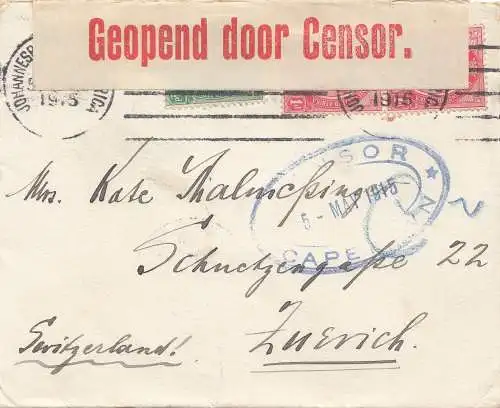 Geopend door Censor.
JOHANNESB
1915
RICA
1915
CENSOR
5 - MAY 1915
CAPE
Mrs. Kate Malmeßinger
Schuetzengaße 22
Zuerich.
Switzerland!